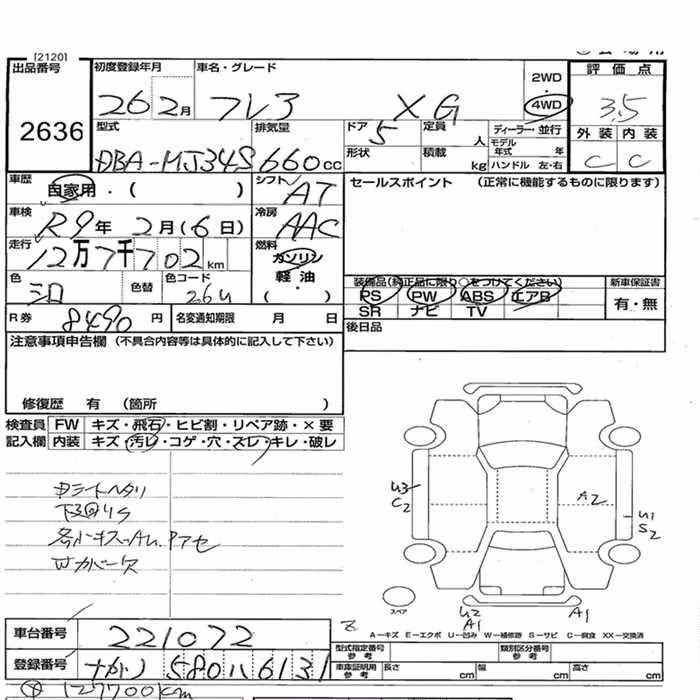 [2120]
出品番号 2636
初度登録年月 26 2月
車名・グレード フレア XG
2WD
4WD
評価点 3.5
外装 C 内装 C
型式 DBA-MJ34S
排気量 660cc
ドア 5
定員 人
ディーラー・並行
モデル年式 年
形状
積載 kg
ハンドル 左・右
車歴 自家用・( )
シフト AT
車検 R9年 2月(6日)
冷房 AAC
走行 12万7千702km
燃料 ガソリン
軽油・( )
色 シロ 色替
色コード 26U
セールスポイント (正常に機能するものに限ります)
装備品(純正品に限り○をつけてください)
新車保証書
PS PW ABS エアB
有・無
SR ナビ TV
R券 8490円
名変通知期限 月 日
後日品
注意事項申告欄 (不具合内容等は具体的に記入して下さい)
修復歴 有 (箇所 )
検査員 FW キズ・飛石・ヒビ割・リペア跡・×要
記入欄 内装 キズ・汚レ・コゲ・穴・スレ・キレ・破レ
Dシートヘタリ
下回りS
各小キズ・AU.Pアセ
Wカバー欠
U3
C2
A2
U1
S2
スペア
U2
A1
A1
A―キズ E―エクボ U―凹み W―補修跡 S―サビ C―腐食 XX―交換済
車台番号 221072
登録番号 ナガノ 580 い 6131
型式指定番号 参考
類別区分番号 参考
車庫証明用 参考 長さ cm 幅 cm 高さ cm
127700km